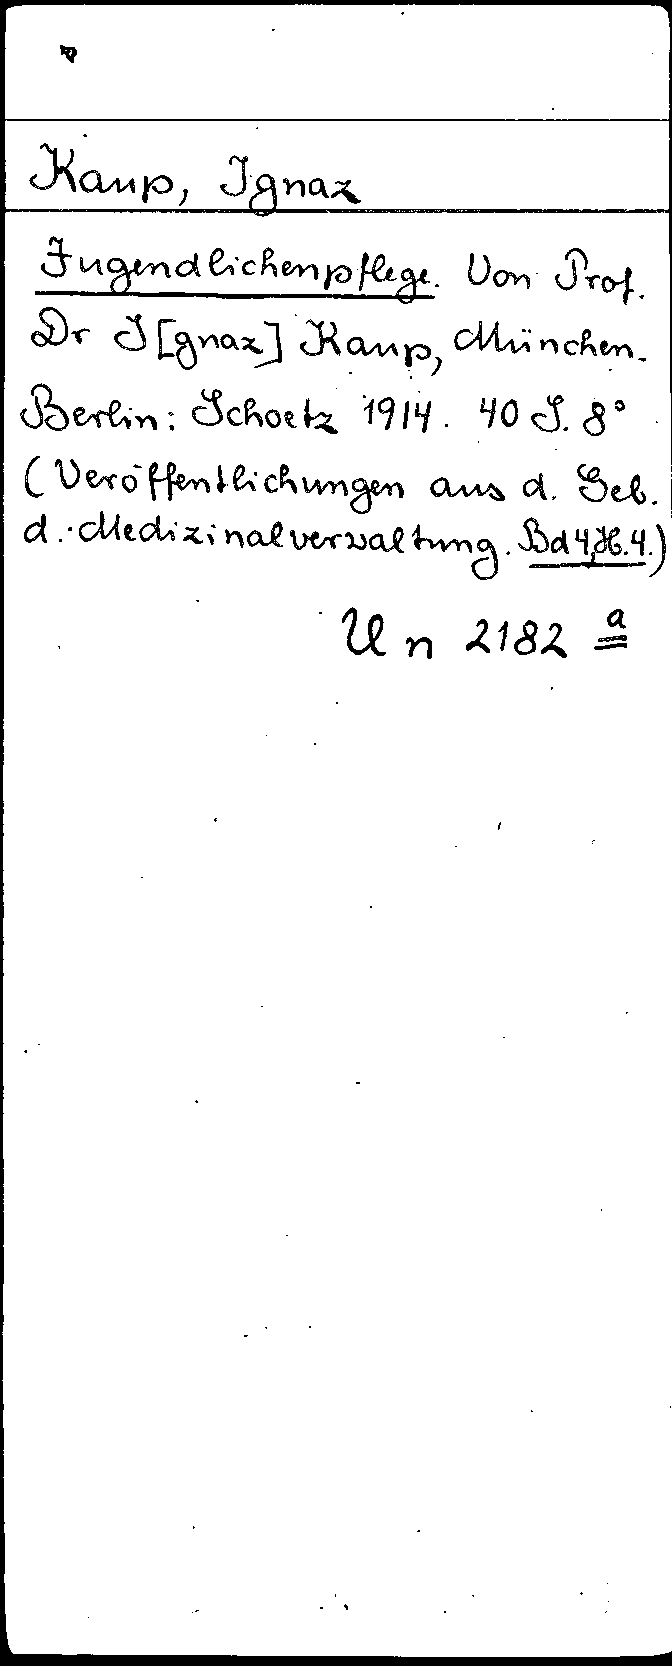 Kaup, Ignaz
Jugendlichenpflege. Von Prof.
Dr I[gnaz] Kaup, München.
Berlin: Schoetz 1914. 40 S. 8°
(Veröffentlichungen aus d. Geb.
d. Medizinalverwaltung. Bd 4,H.4.)
Un 2182 a